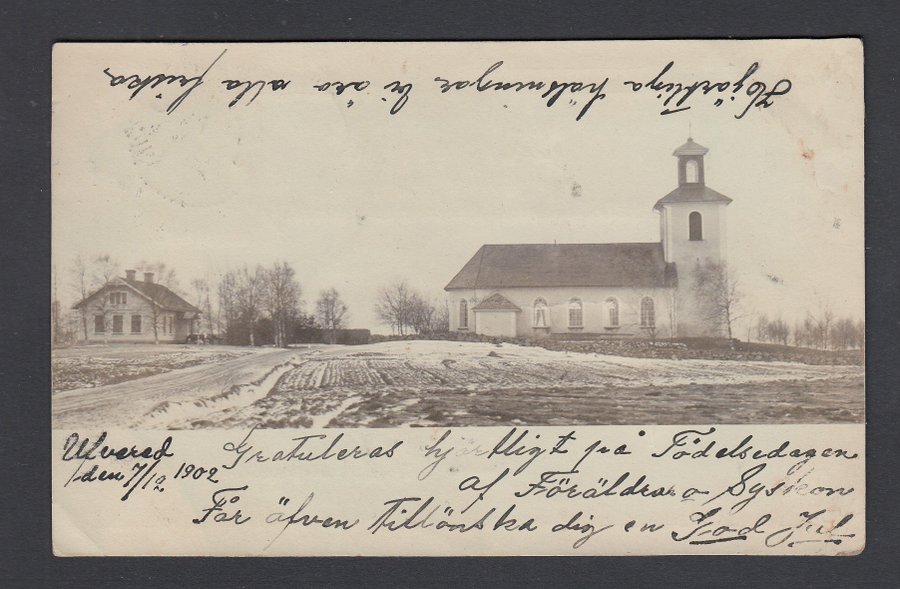 Hjärtliga hälsningar Vi äro alla friska
Ulvered
den 7/12 1902
Gratuleras hjärtligt på Födelsedagen
af Föräldrar o Syskon
Får äfven tillönska dig en God Jul